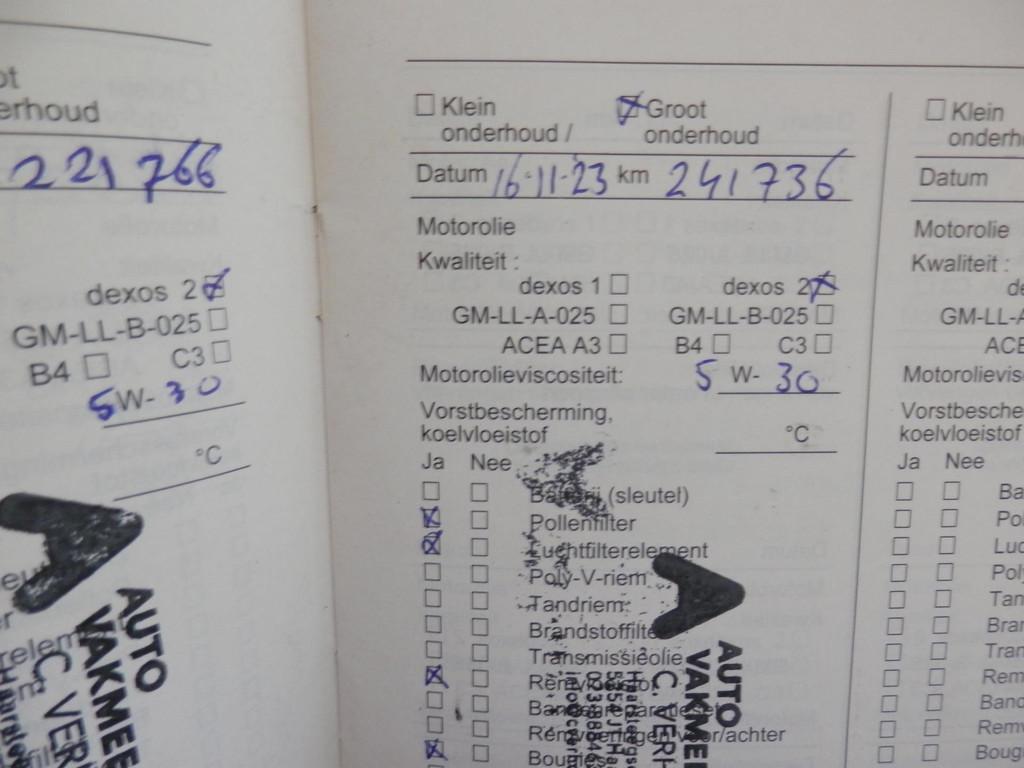 ot
erhoud
221 766
dexos 2
GM-LL-B-025
B4 C3
5 W- 30
°C
AUTO
VAKMEE
C. VERH
Klein Groot
onderhoud / onderhoud
Datum 16-11-23 km 241736
Motorolie
Kwaliteit :
dexos 1 dexos 2
GM-LL-A-025 GM-LL-B-025
ACEA A3 B4 C3
Motorolieviscositeit: 5 W- 30
Vorstbescherming,
koelvloeistof °C
Ja Nee
Batterij (sleutel)
Pollenfilter
Luchtfilterelement
Poly-V-riem
Tandriem
Brandstoffilte
Transmissieolie
Remv
Band
Remvoeringen voor/achter
Boug
AUTO
VAKMEE
C. VERH
Klein
onderh
Datum
Motorolie
Kwaliteit :
de
GM-LL-A
ACE
Motorolievis
Vorstbesche
koelvloeistof
Ja Nee
Ba
Po
Luc
Poly
Tan
Bran
Tran
Rem
Band
Remv
Boug